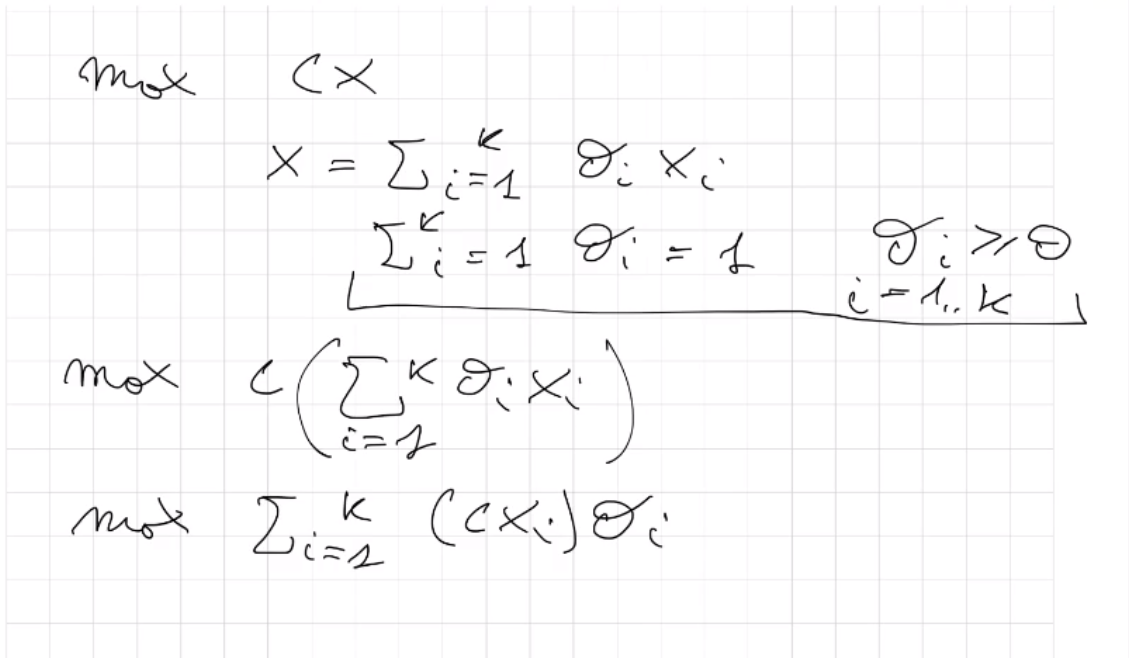 max cx
x = ∑ᵢ₌₁ᴷ ϑᵢ xᵢ
∑ᵢ₌₁ᴷ ϑᵢ = 1 ϑᵢ ≥ 0
i = 1.. K
max c(∑ᵢ₌₁ᴷ ϑᵢ xᵢ)
max ∑ᵢ₌₁ᴷ (cxᵢ)ϑᵢ